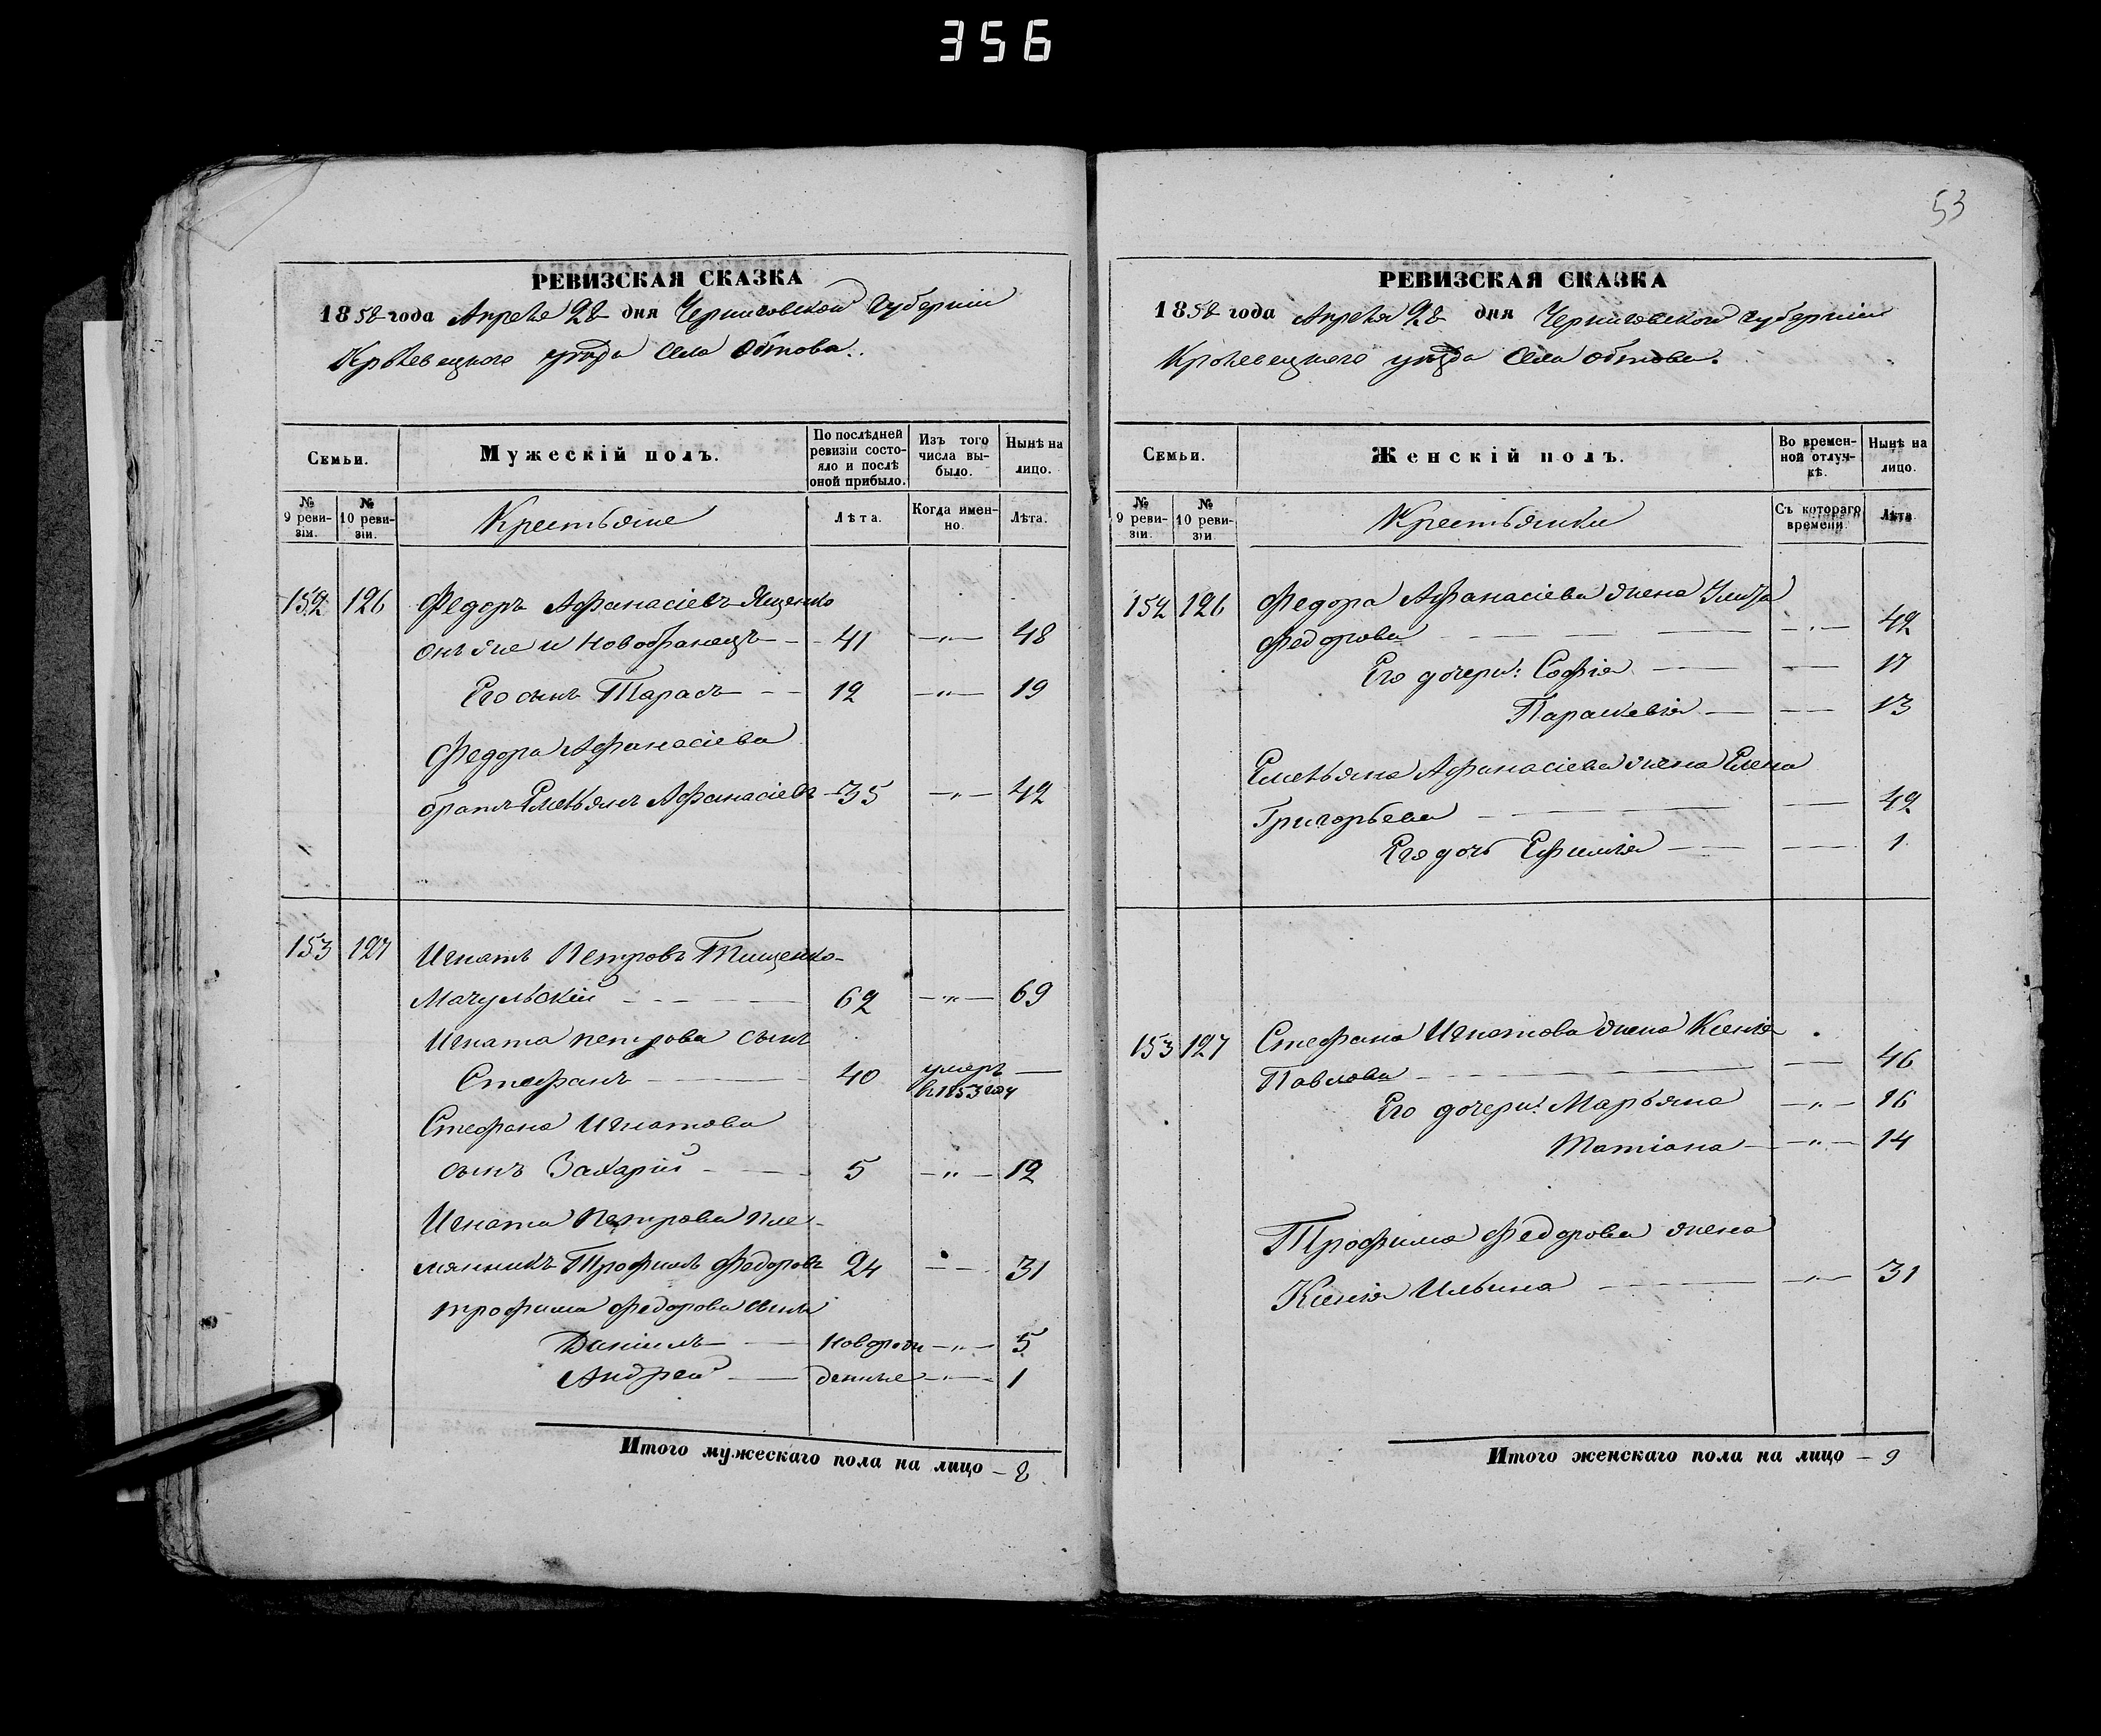 356
53
РЕВИЗСКАЯ СКАЗКА
1858 года Апреля 28 дня Черниговской губерніи
Кролевецкого уезда Села Обтова.
Семьи.
Мужескій полъ.
По послѣдней ревизіи состояло и послѣ оной прибыло.
Изъ того числа выбыло.
Нынѣ на лицо.
№ 9 ревизіи.
№ 10 ревизіи.
Крестьяне
Лѣта.
Когда именно.
Лѣта.
152 126 Федоръ Афанасіевъ Ященко
онъ же и Новобранецъ — 41 —„— 48
Его сынъ Тарасъ — 12 —„— 19
Федора Афанасіева
братъ Емельянъ Афанасіевъ 35 —„— 42
153 127 Игнатъ Петровъ Тищенко-
Мачульскій — 62 —„— 69
Игната петрова сынъ
Стефанъ — 40 умеръ —
въ 1853 году
Стефана Игнатова
сынъ Захарій — 5 —„— 12
Игната Петрова пле-
мянникъ Трофимъ Федоровъ 24 — 31
трофима федорова сыны
Даніилъ — новорож —„— 5
Андрей — денные —„— 1
Итого мужескаго пола на лицо — 8
РЕВИЗСКАЯ СКАЗКА
1858 года Апреля 28 дня Черниговской губерніи
Кролевецкого уезда Села Обтова.
Семьи.
Женскій полъ.
Во временной отлучкѣ.
Нынѣ на лицо.
№ 9 ревизіи.
№ 10 ревизіи.
Крестьянки
Съ котораго времени.
Лѣта.
152 126 Федора Афанасіева жена
Федорова — —„— 42
Его дочери: Софія — — 17
Параскевія — — 13
Емельяна Афанасіева жена Елена
Григорьева — — 42
Его дочь Ефимія — — 1
153 127 Стефана Игнатова жена Ксенія
Павлова — — 46
Его дочери: Марьяна —„— 16
Татіана —„— 14
Трофима Федорова жена
Ксенія Ильина — —„— 31
Итого женскаго пола на лицо — 9